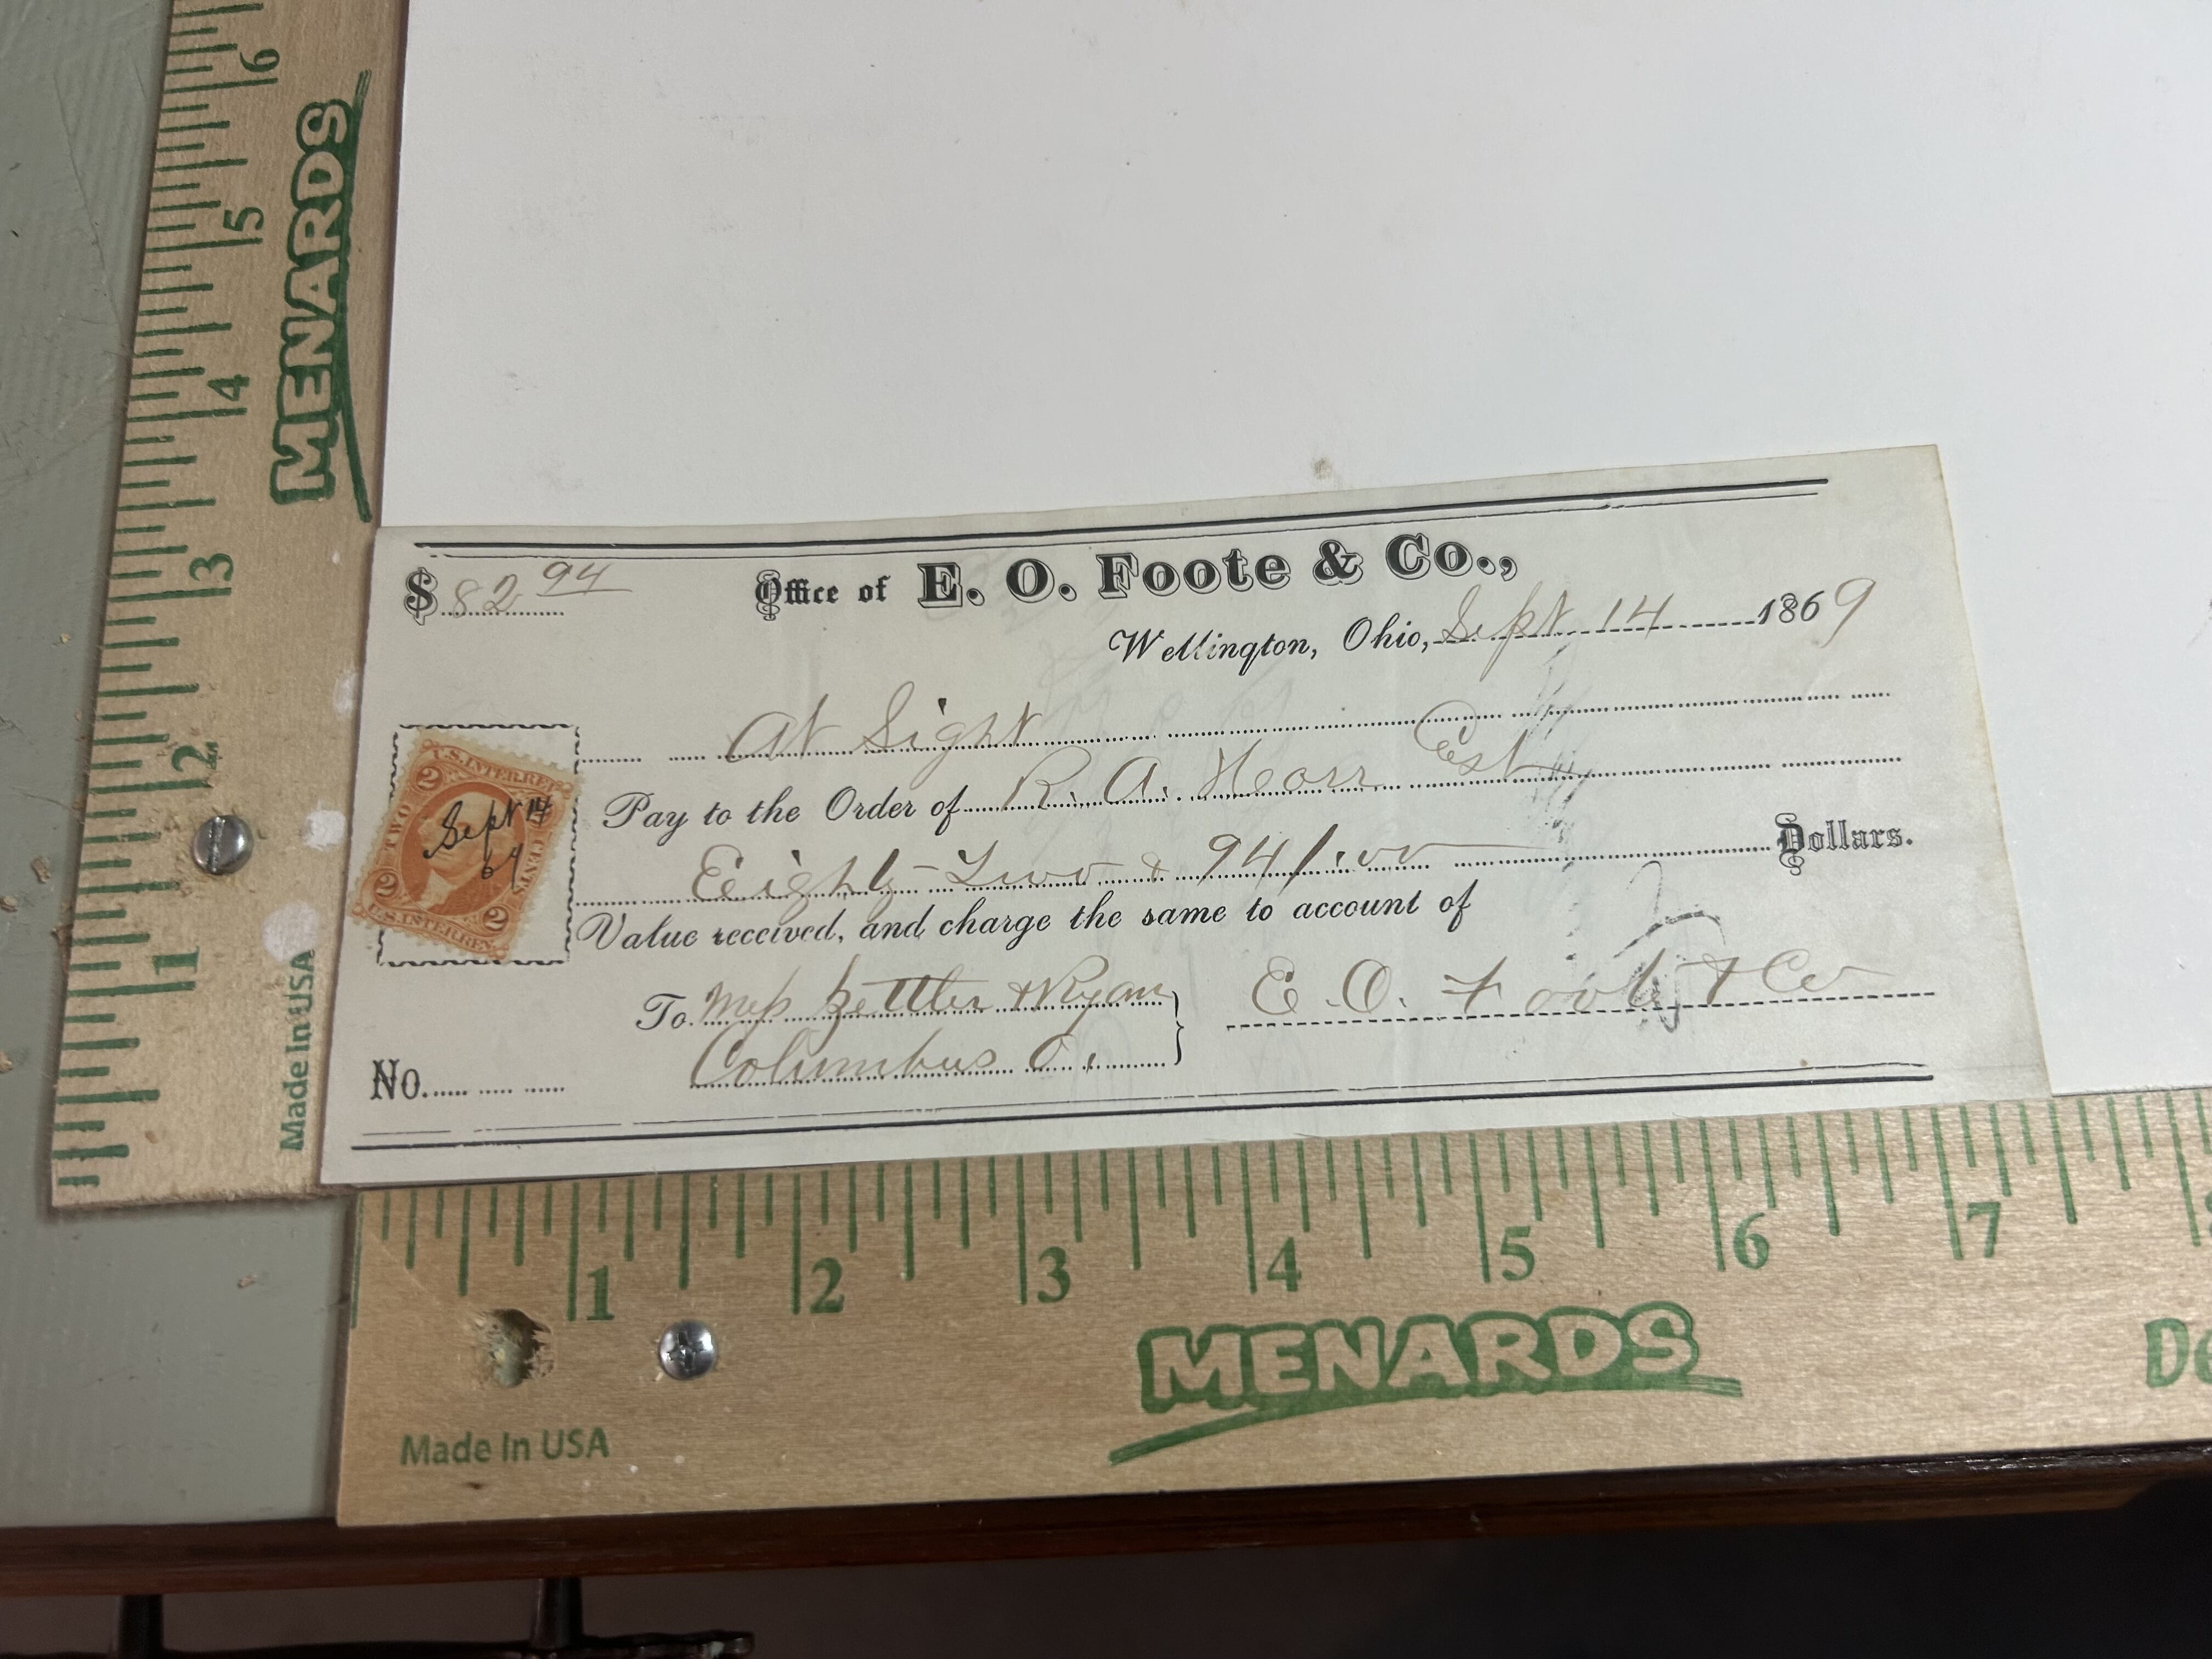 6
MENARDS
5
4
3
2
1
Made In USA
$ 82 94
Office of E. O. Foote & Co.,
Wellington, Ohio, Sept 14 1869
At Sight
Pay to the Order of R. A. Horr Cast
Eighty-Two & 94/100 Dollars.
Value received, and charge the same to account of
To Mess Zettler & Ryan
Columbus O.
E. O. Foote & Co
No.
U.S. INTER. REV.
2
TWO CENTS
Sept 14
69
2 2
U.S. INTER. REV.
1 2 3 4 5 6 7
MENARDS
Made In USA